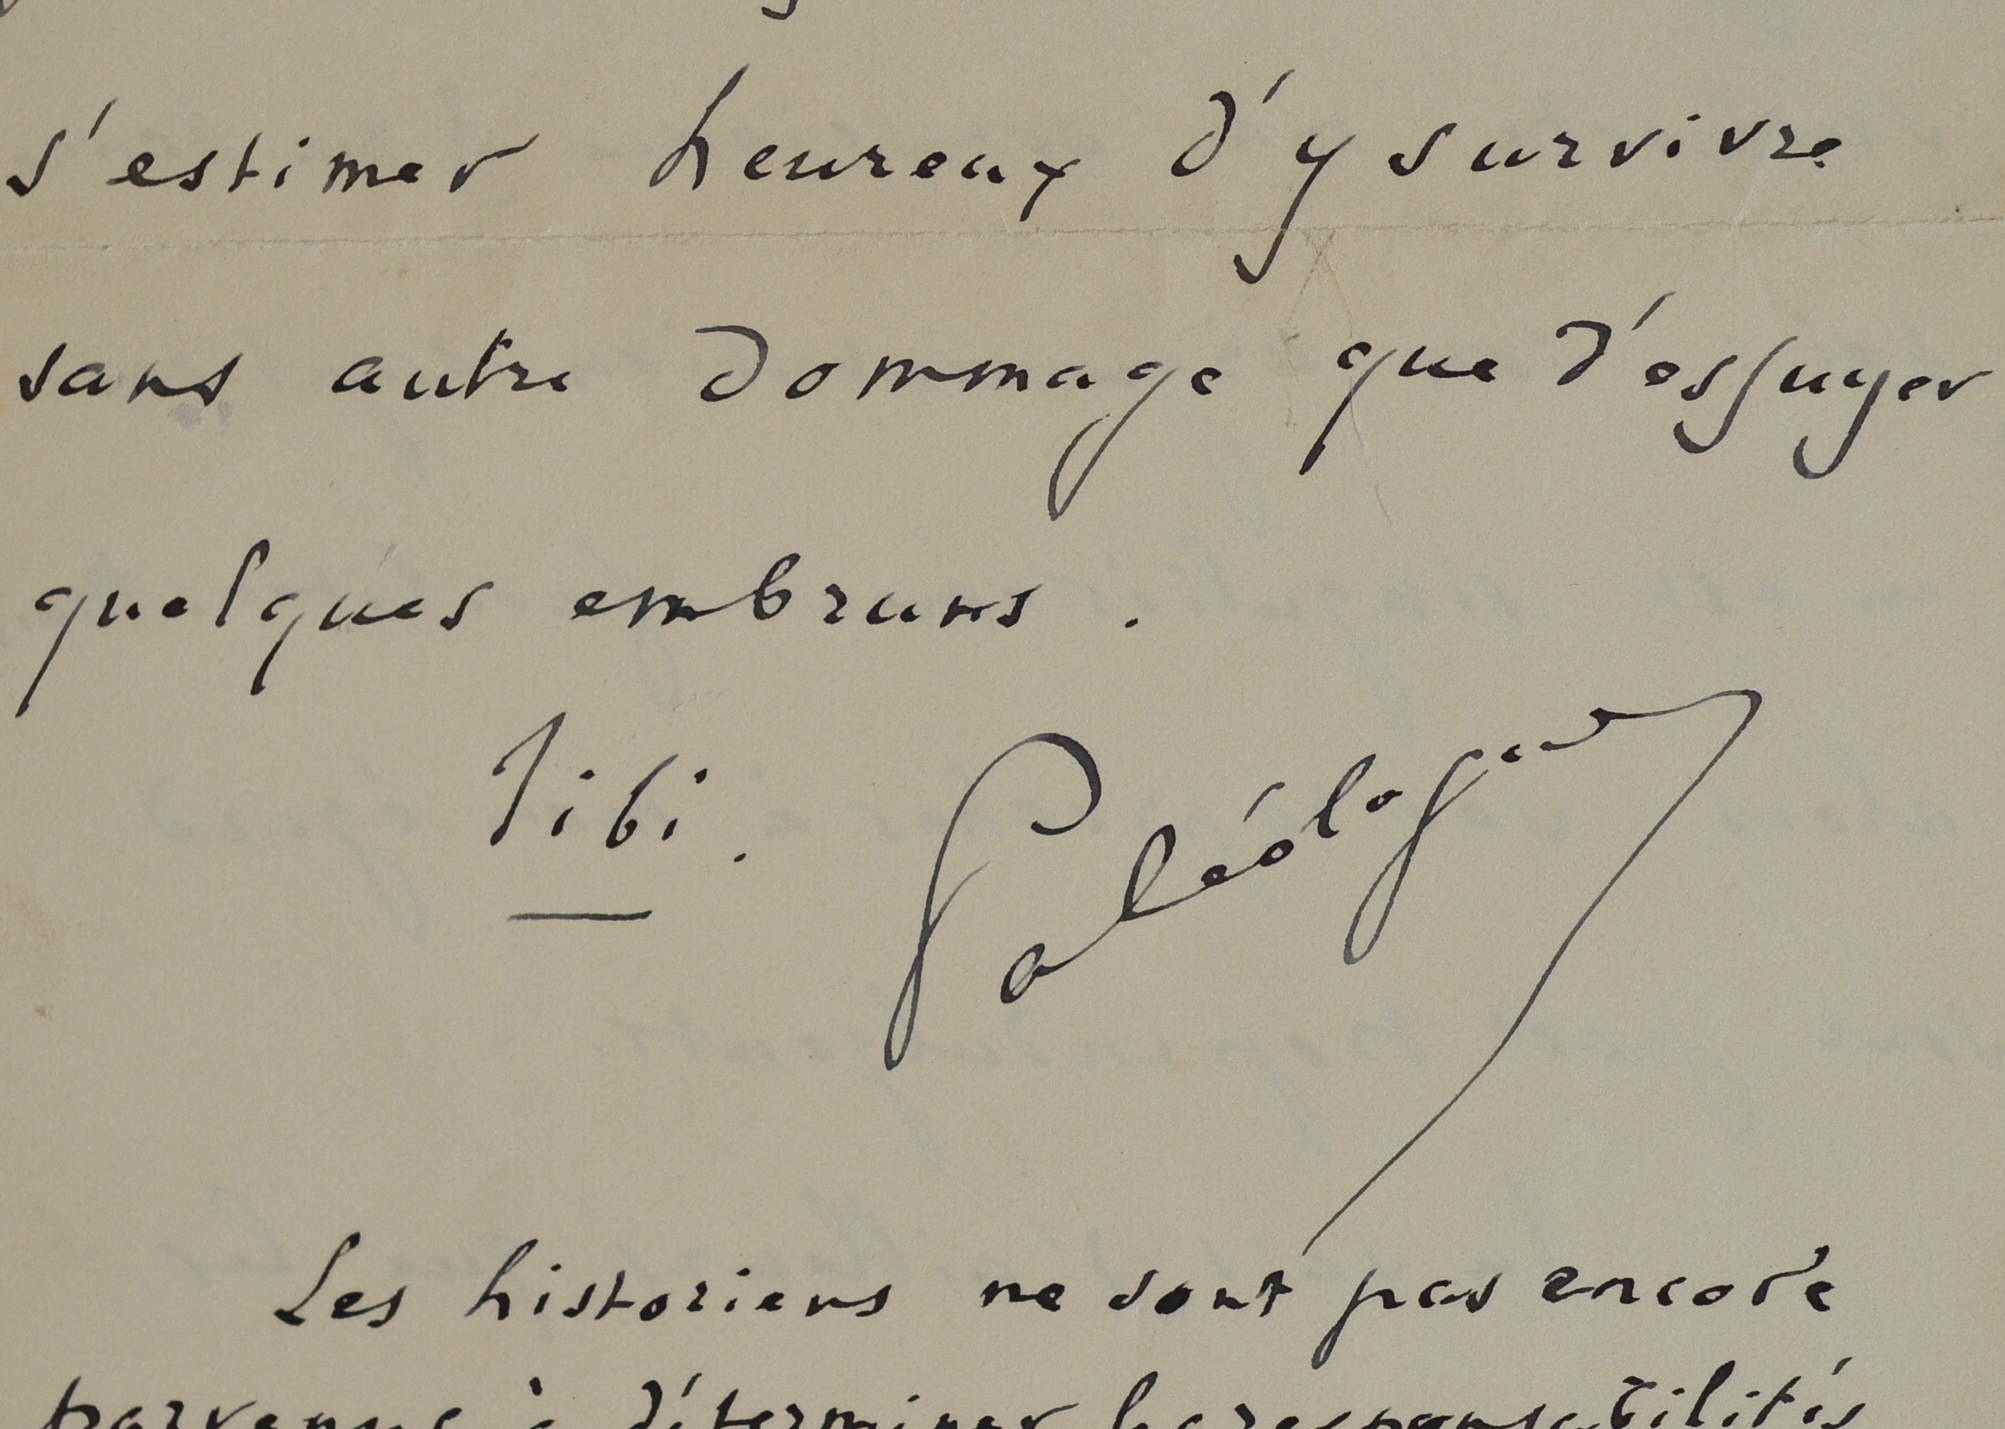 s'estimer heureux d'y survivre
sans autre dommage que d'essuyer
quelques embruns.
Tibi.
Paléologue
Les historiens ne sont pas encore
parvenus à déterminer les responsabilités